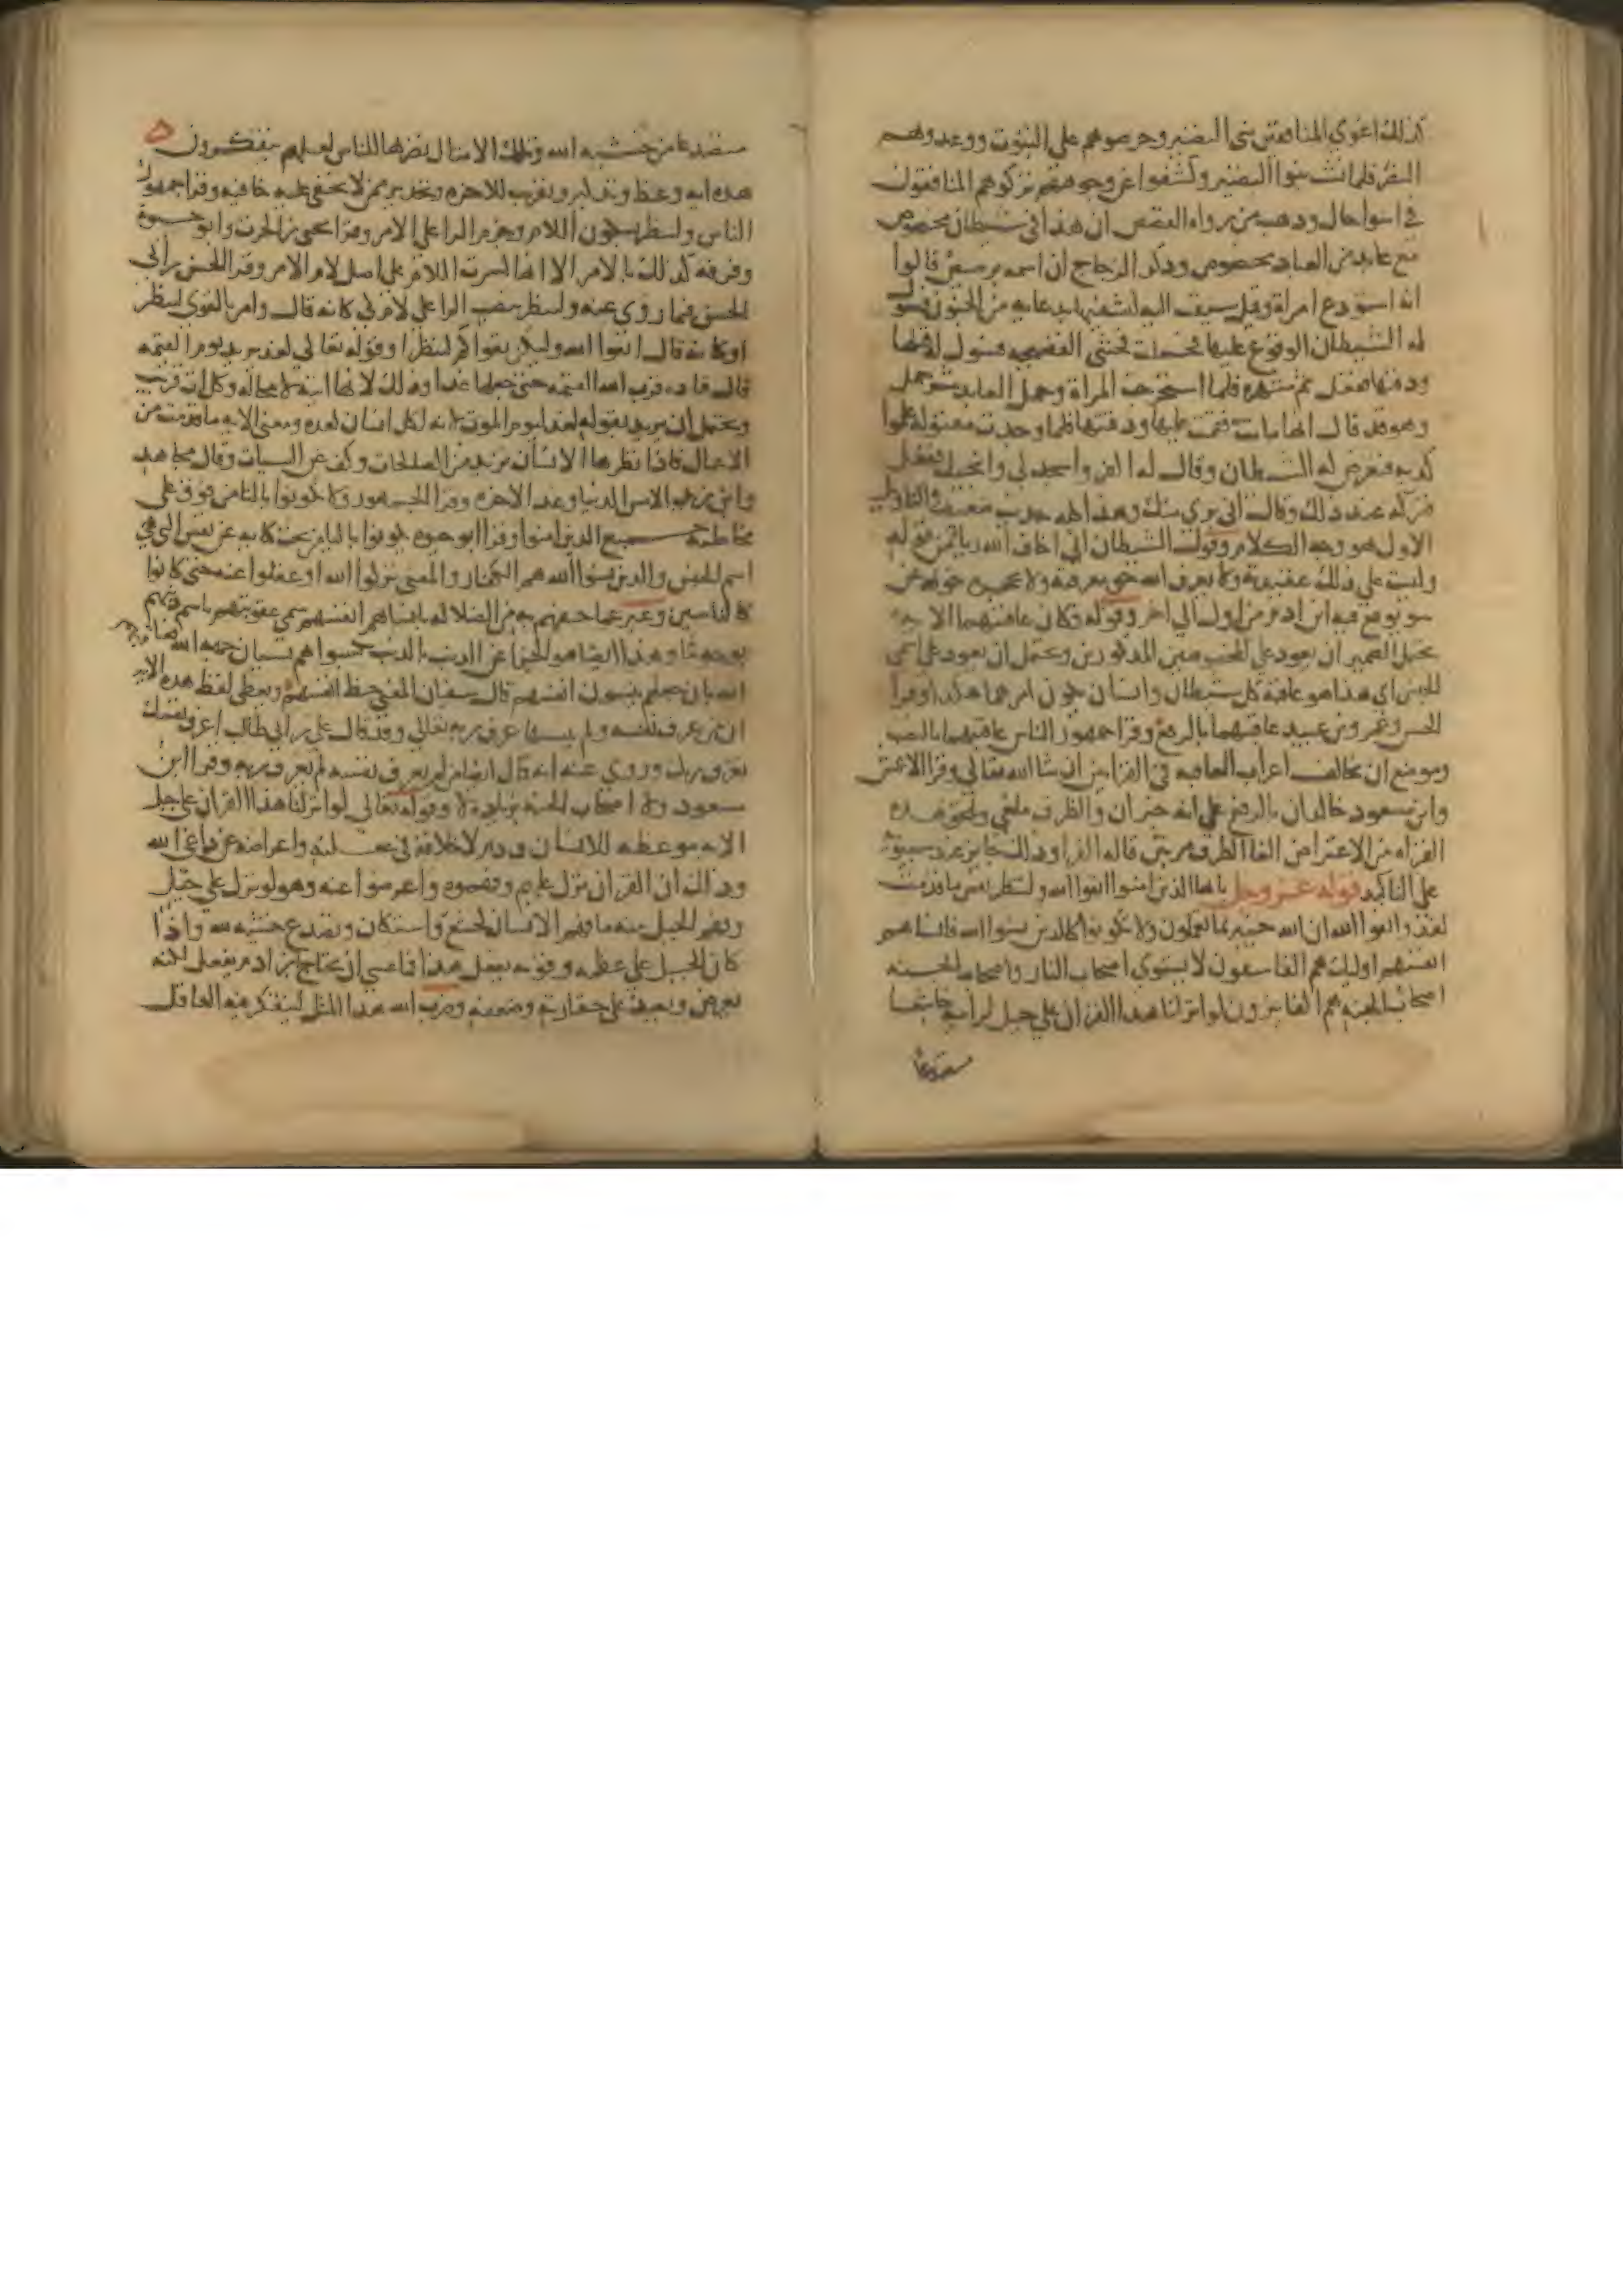 كذلك اغوى المنافقين بني النضير وحرصوهم على الثبوت ووعدوهم
النصر فلما نشبوا النضير وكشفوا عن وجوههم تركوهم المنافقون
في اسوا حال وذهب من رواه القصص ان هذا في شيطان مخصوص
مع عابد من العباد مخصوص وذكر الزجاج ان اسمه برصيص قالوا
انه استودع امراة وقيل سيقت اليه ليشفيها بدعايه من الجنون فسول
له الشيطان الوقوع عليها فحملت فخشي الفضيحه فسول له قتلها
ودفنها ففعل ثم شهره فلما استخرجت المراة وحمل العابد شر حمل
وهو قد قال انها ماتت فقمت عليها ودفنتها فلما وجدت مقتوله علموا
كذبه فتعرض له الشيطان وقال له اكفر واسجد لي وانجيك ففعل
فتركه عند ذلك وقال اني بري منك وهذا كله حديث ضعيف والتاويل
الاول هو وجه الكلام وقول الشيطان اني اخاف الله ريا من قوله
وليست على ذلك عقيدته ولا يعرف الله حق معرفته ولا يحجزه خوفه عن
سو يوقع فيه ابن ادم من اول الى اخر وقوله فكان عاقبتهما الايه
يحتمل الضمير ان يعود على المخصوصين المذكورين ويحتمل ان يعود على اسمي
الجنس اي هذا هو عاقبة كل شيطان وانسان يكون امرهما هكذا وقرا
الحسن وعمرو بن عبيد عاقبتهما بالرفع وقرا جمهور الناس عاقبتهما بالنصب
وموضع ان يخالف اعراب العاقبه في القراتين ان شا الله تعالى وقرا الاعمش
وابن مسعود خالدان بالرفع على انه خبر ان والظرف ملغى ويلحق هذه
القراه من الاعتراض الغا الظرف مرتين قاله الفرا وذلك جايز عند سيبويه
على التاكيد قوله عز وجل يا ايها الذين امنوا اتقوا الله ولتنظر نفس ما قدمت
لغد واتقوا الله ان الله خبير بما تعملون ولا تكونوا كالذين نسوا الله فانساهم
انفسهم اوليك هم الفاسقون لا يستوي اصحاب النار واصحاب الجنه
اصحاب الجنه هم الفايزون لو انزلنا هذا القران على جبل لرايته خاشعا
متصدعا
متصدعا من خشيه الله وتلك الامثال نضربها للناس لعلهم يتفكرون
هذه ايه وعظ وتذكير وتقريب للاخره وتحذير ممن لا تخفى عليه خافيه وقرا جمهور
الناس ولتنظر بسكون اللام وجزم الرا على الامر وقرا يحيى بن الحرث وابو حيوة
وفرقه كذلك بالامر الا انها كسرت اللام على اصل لام الامر وقرا الحسن بن ابي
الحسن فيما روي عنه ولتنظر بنصب الرا على لام كي كانه قال وامر بالتقوى لتنظر
او كانه قال اتقوا الله وليكن تقواكم لتنظر وقوله تعالى لغد يريد يوم القيمه
قال قتاده قرب الله القيمه حتى جعلها غدا وذلك لانها اتيه لا محاله وكل ات قريب
ويحتمل ان يريد بقوله لغد ليوم الموت لانه لكل انسان لغده ومعنى الايه ما قدمت من
الاعمال فاذا نظرها الانسان تزيد من الصالحات وكف عن السيات وقال مجاهد
وابن زيد الامس الدنيا وغد الاخره وقرا الجمهور ولا تكونوا بالتا من فوق على
مخاطبة جميع الذين امنوا وقرا ابو حيوه يكونوا باليا من تحت كنايه عن نفس التي هي
اسم الجنس والذين نسوا الله هم الكفار والمعنى تركوا الله وغفلوا عنه حتى كانوا
كالناسين وعبر عما حفهم به من الضلاله بانساهم انفسهم سمى عقوبتهم باسم ذنبهم
بوجه ما وهذا ايضا هو الجزا على الذنب بالذنب كسبوا هم نسيان جهه الله
الله بان جعلهم ينسون انفسهم قال سفيان المعنى حظ انفسهم ويعطي لفظ هذه الايه
ان من عرف نفسه ولم ينسها عرف ربه تعالى وقد قال علي بن ابي طالب اعرف نفسك
تعرف ربك وروي عنه انه قال ايضا من لم يعرف نفسه لم يعرف ربه وقرا ابن
مسعود ولا اصحاب الجنه بزيادة لا وقوله تعالى لو انزلنا هذا القران على جبل
الايه موعظه للانسان وذم لاخلاقه في غفلته واعراضه عن داعي الله
وذلك ان القران نزل عليهم وفهموه واعرضوا عنه وهو لو نزل على جبل
وفهم الجبل منه ما فهم الانسان لخشع واستكان وتصدع خشيه لله واذا
كان الجبل على عظمه وقوته يفعل هذا فما عسى ان يحتاج ابن ادم يفعل لكنه
يعرض ويصدف على حقارته وضعفه وضرب الله هذا المثل ليتفكر فيه العاقل